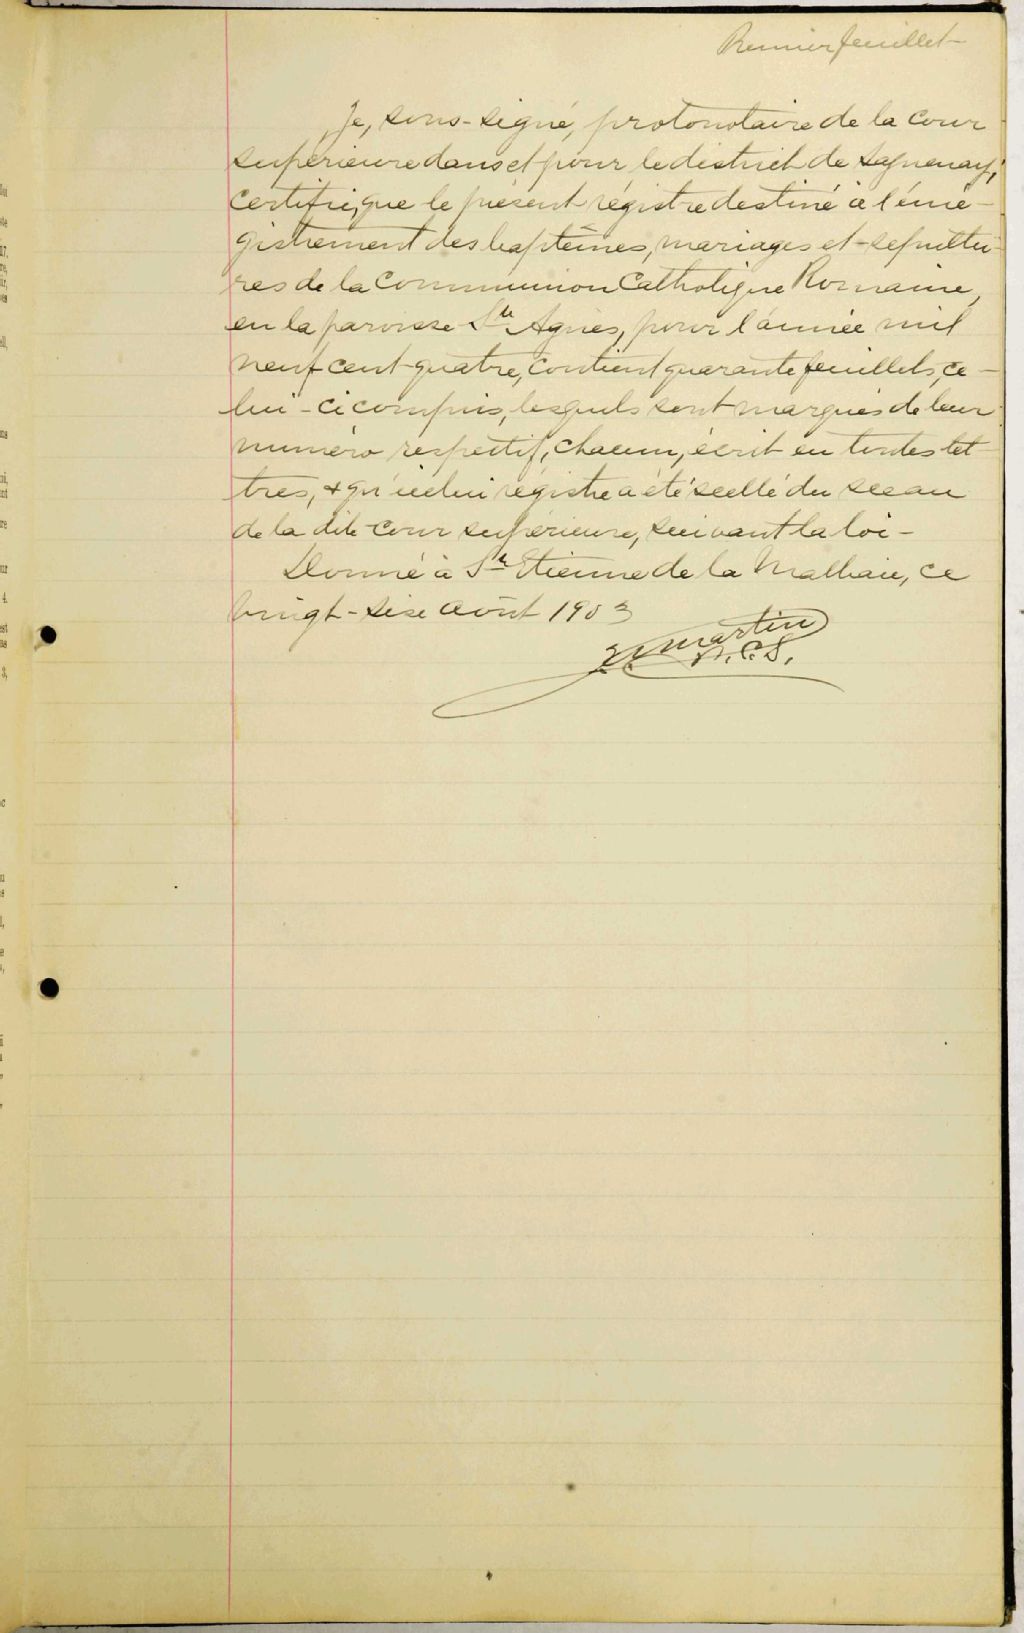 Premier feuillet
Je, sous-signé, protonotaire de la cour
supérieure dans et pour le district de Saguenay,
certifie, que le présent régistre destiné à l'enré-
gistrement des baptêmes, mariages et sépultu-
res de la Communion Catholique Romaine,
en la paroisse Ste Agnès, pour l'année mil
neuf cent quatre, contient quarante feuillets, ce-
lui-ci compris, lesquels sont marqués de leur
numéro respectif, chacun, écrit en toutes let-
tres, & qu'icelui régistre a été scellé du sceau
de la dite cour supérieure, suivant la loi-
Donné à St Etienne de la Malbaie, ce
vingt-sixe Août 1903
Martin
P.C.S.